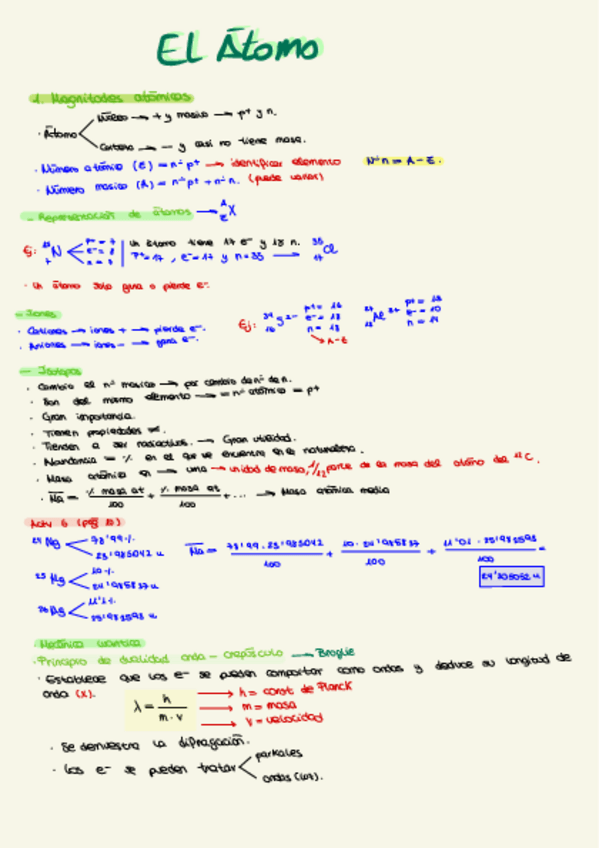 El Átomo
1. Magnitudes atómicas
· Átomo
Núcleo → + y masico → p+ y n.
Corteza → - y casi no tiene masa.
· Número atómico (Z) = nº p+ → identificar elemento Nº n = A - Z.
· Número masico (A) = nº p+ + nº n. (puede variar)
- Representación de átomos → A Z X
Ej: N p+ = 7 e- = n = Un átomo tiene 17 e- y 18 n. 35 17 Cl
p+=17, e-=17 y n=35 →
· Un átomo solo gana o pierde e-.
- Iones
· Cationes → iones + → pierde e-.
· Aniones → iones - → gana e-.
Ej: 34 16 S 2- p+ = 16 e- = 18 n = 18 27 13 Al 3+ p+ = 13 e- = 10 n = 14
→ A-Z
- Isotopos
· Cambia el nº masico → por cambio de nº de n.
· Son del mismo elemento → = nº atómico = p+
· Gran importancia.
· Tienen propiedades ≠.
· Tienden a ser radiactivos. → Gran utilidad.
· Abundancia = % en el que se encuentra en la naturaleza.
· Masa atómica en → uma → unidad de masa, 1/12 parte de la masa del átomo del 12 C.
· Ma = % masa at / 100 + % masa at / 100 + ... → Masa atómica media
Actv 6 (pag 10)
24 Mg 78'99 % 23'985042 u
Ma = 78'99 · 23'985042 / 100 + 10 · 24'985837 / 100 + 11'01 · 25'982593 / 100 =
25 Mg 10 % 24'985837 u
24'305052 u
26 Mg 11'1 % 25'982593 u
Mecánica cuántica
· Principio de dualidad onda - crepúsculo → Broglie
· Establece que los e- se pueden comportar como ondas y deduce su longitud de
onda (λ).
λ = h / m · v
→ h = const de Planck
→ m = masa
→ v = velocidad
· Se demuestra la difragación.
· Los e- se pueden tratar
parkales
ondas (luz).